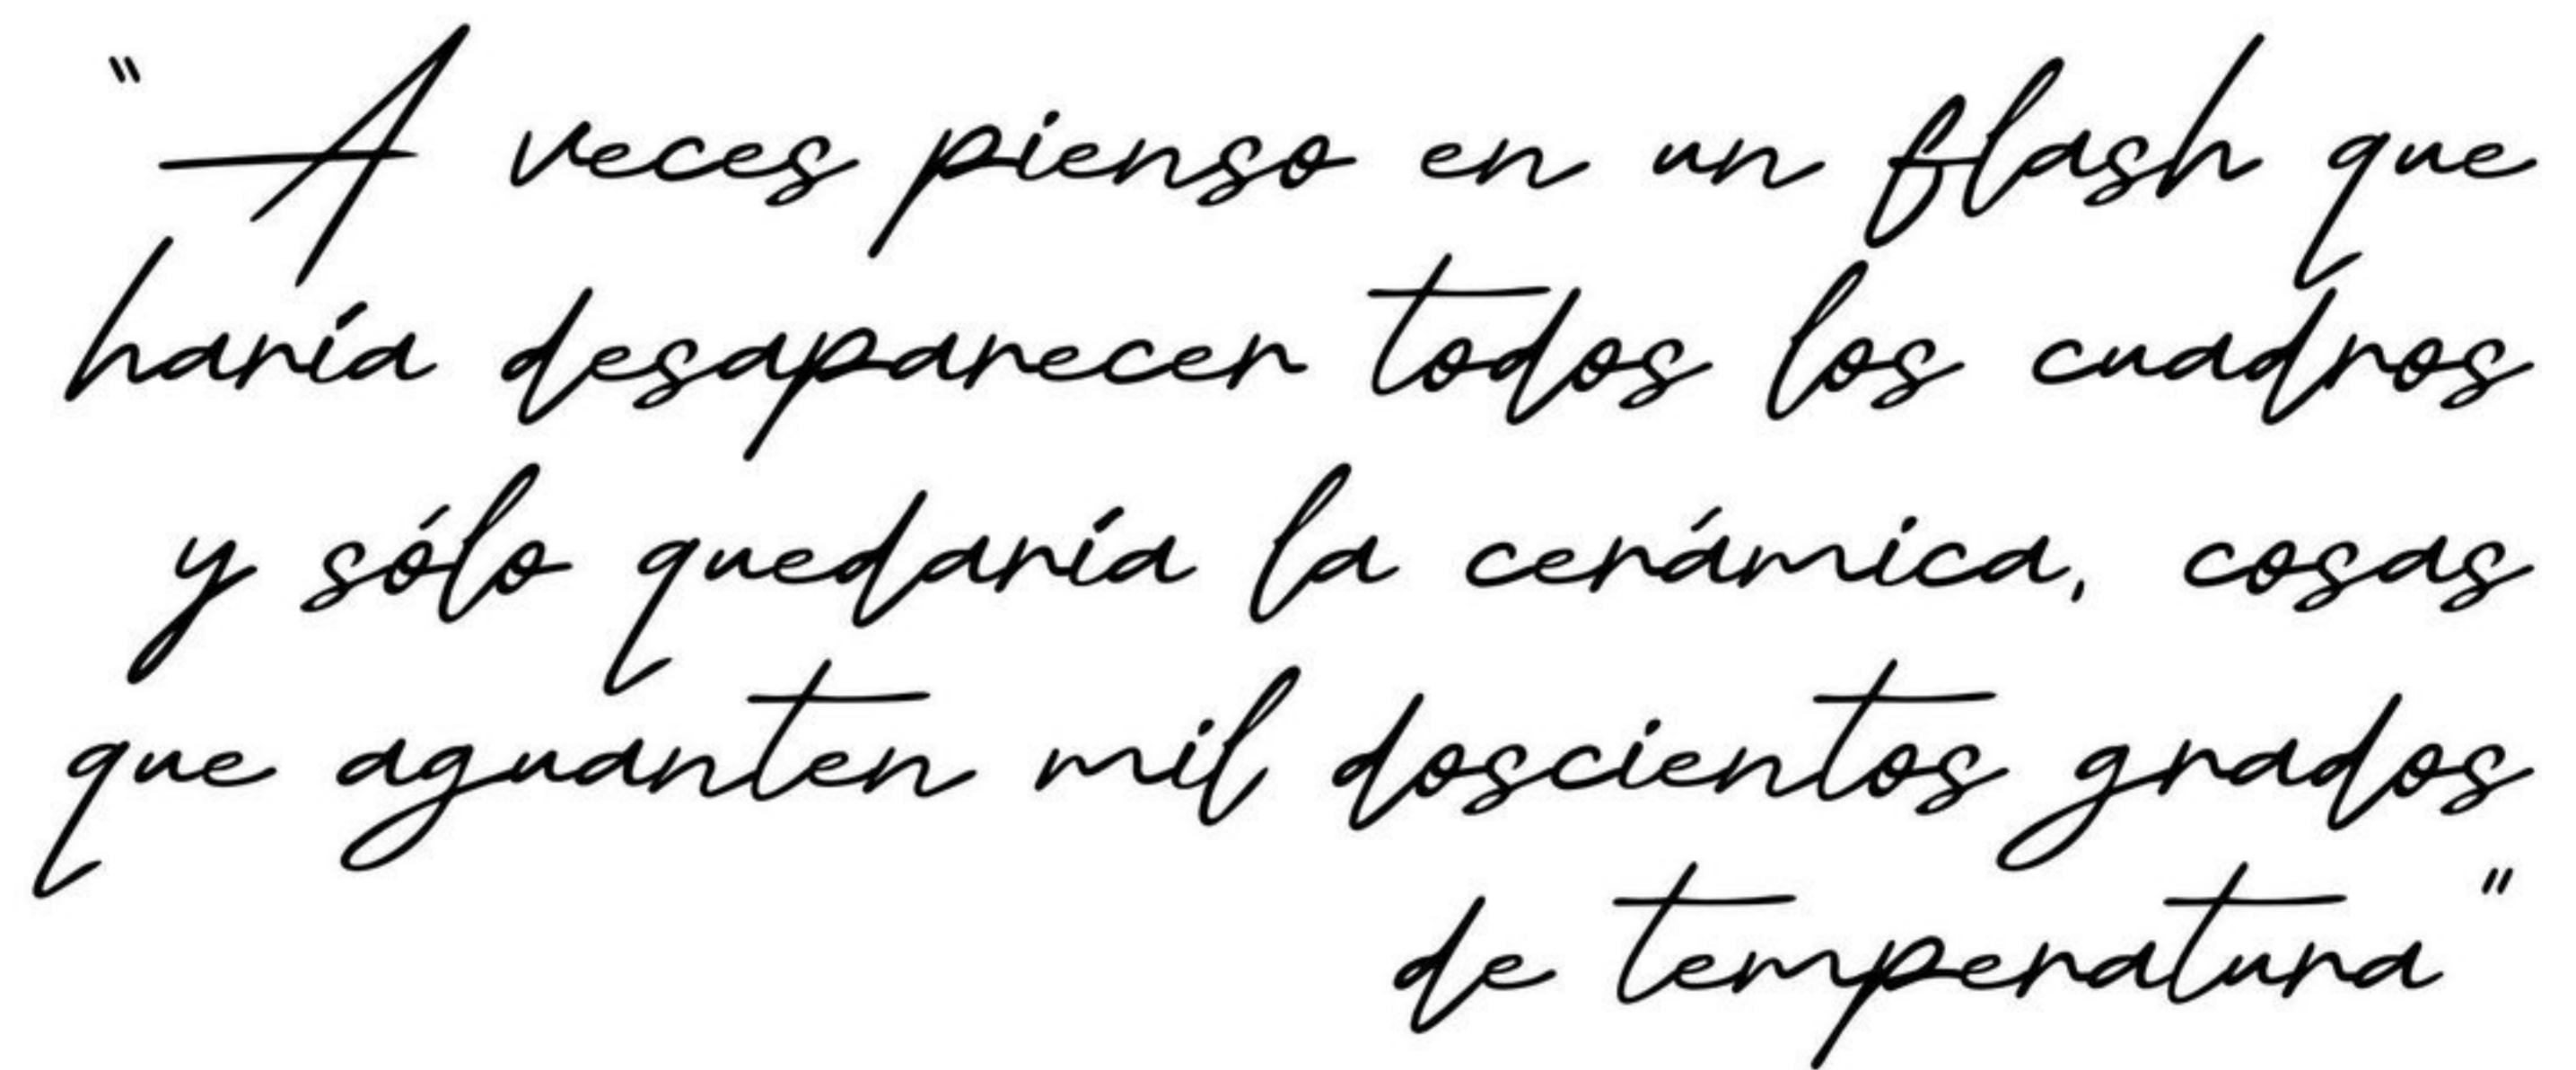 “A veces pienso en un flash que
haría desaparecer todos los cuadros
y sólo quedaría la cerámica, cosas
que aguanten mil doscientos grados
de temperatura”